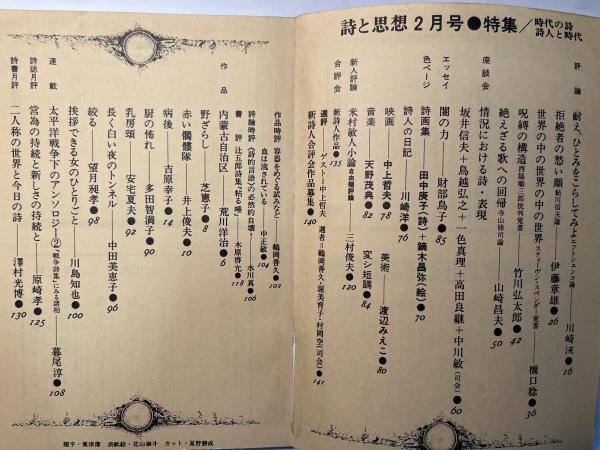 詩と思想2月号●特集／時代の詩人詩と時代
評論
耐え、ひとみをこらしてみよ エフトシェンコ論――川崎洋●16
拒絶者の愁い顔 鮎川信夫論――伊藤章雄●26
世界の中の世界 スティーヴン・スペンダー覚書――橋口稔●36
呪縛の構造 西脇順三郎批判覚書――竹川弘太郎●42
絶えざる歌への回帰 寺山修司論――山崎昌夫●50
座談会
情況における詩・表現
坂井信夫＋鳥越弘之＋一色真理＋高田良継＋中川敏(司会)●60
エッセイ
闇の力――財部鳥子●85
色ページ
詩画集――田中庚子(詩)＋鏑木昌弥(絵)●70
詩人の日記――川崎洋●76
映画――中上哲夫●78
美術――渡辺みえこ●80
音楽――天野茂典●82
変シ短調●84
新人評論
米村敏人小論 自由離脚論――三村俊夫●120
合評会
新詩人作品●135
選評 ゲスト―中上哲夫 選者＝鶴岡善久・渥美育子・村岡空(司会)●141
新詩人合評会作品募集●140
作品時評
容器をめぐる試みなど――鶴岡善久●102
血は流されている――中正敏●104
詩論時評
〈詩的言語〉の必然的自壊！――水川真●106
書評
辻五郎詩集「帖る唾」――木原啓允●118
作品
内蒙古自治区――荒川洋治●6
野ざらし――芝憲子●8
赤い髑髏隊――井上俊夫●10
病後――吉原幸子●14
厨の怖れ――多田智満子●90
乳房頌――安宅夏夫●92
長く白い夜のトンネル――中田美恵子●96
絞る――望月昶孝●98
挨拶できる女のひとりごと――川島知也●100
連載
太平洋戦争下のアンソロジー② 「戦争詩集」にみる諸相――暮尾淳●108
詩誌月評
営為の持続と新しさの持続と――原崎孝●125
詩書月評
二人称の世界と今日の詩――澤村光博●130
題字・粟津潔 表紙絵・北山泰斗 カット・星野勝成